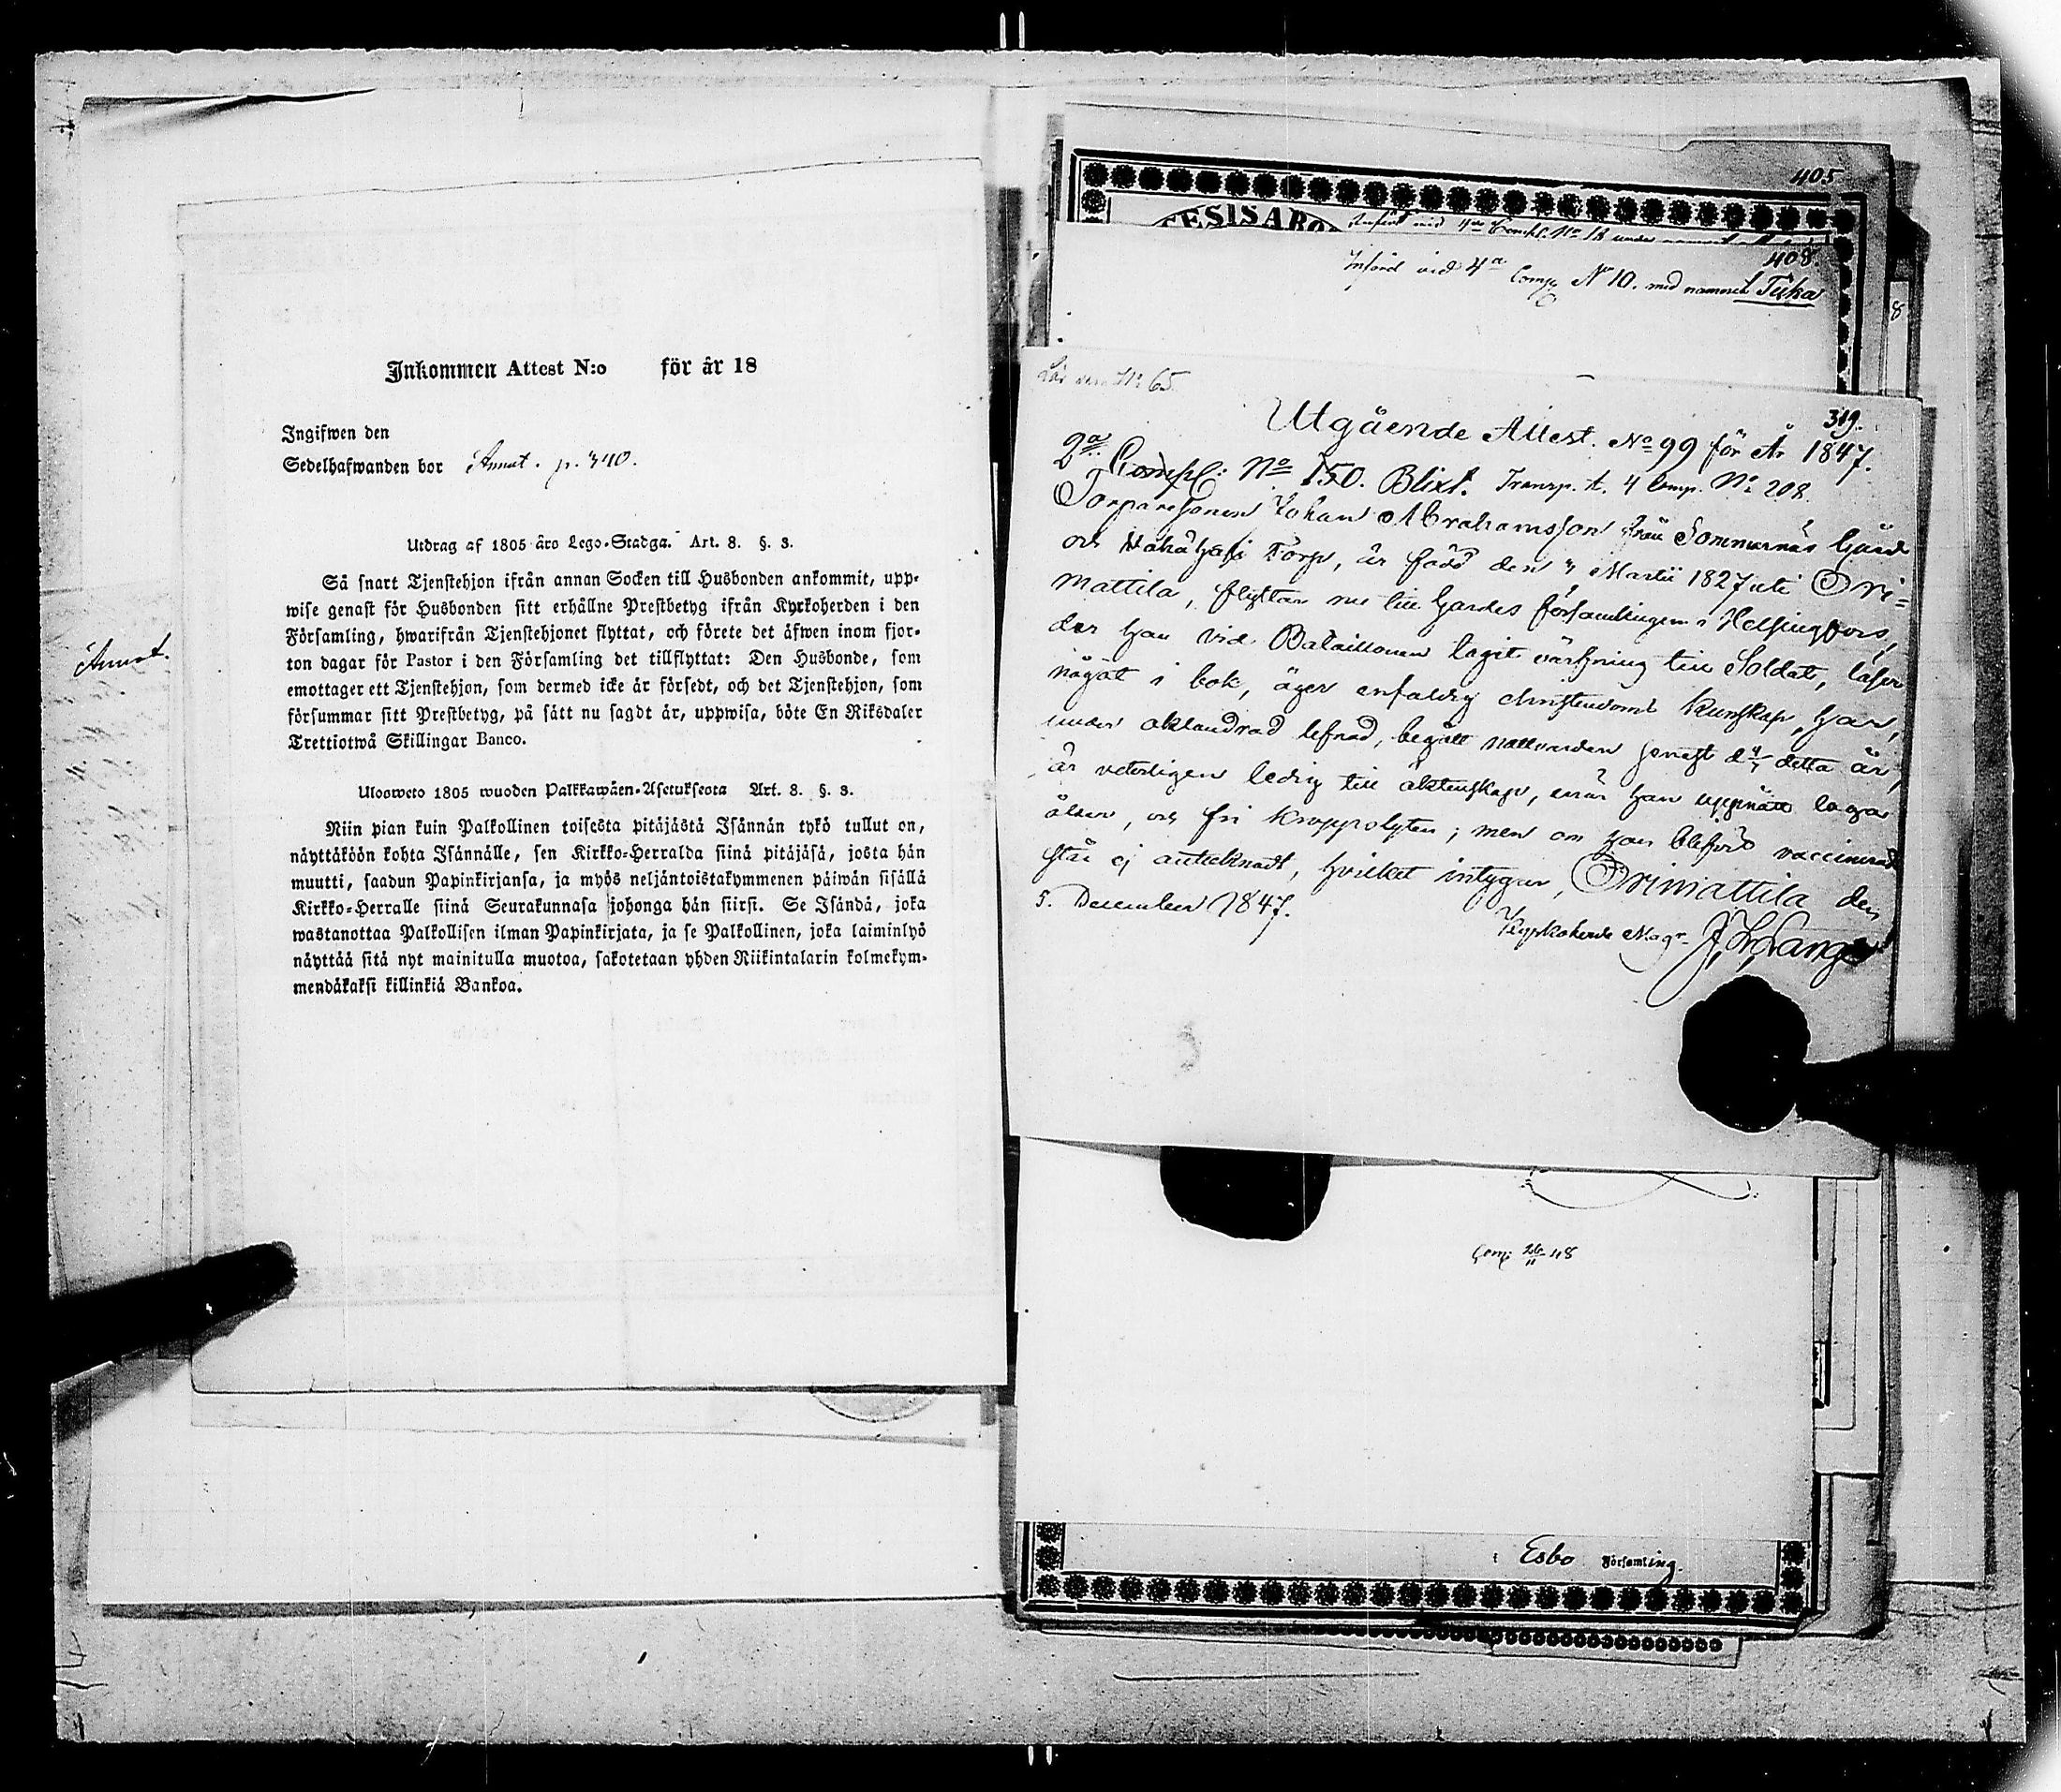 Inkommen Attest N:o för år 18
Ingifwen den
Sedelhafwanden bor Annat. p. 340.
Utdrag af 1805 års Lego-Stadga. Art. 8. §. 3.
Så snart Tjenstehjon ifrån annan Socken till Husbonden ankommit, upp-
wise genast för Husbonden sitt erhållne Prestbetyg ifrån Kyrkoherden i den
Församling, hwarifrån Tjenstehjonet flyttat, och förete det äfwen inom fjor-
ton dagar för Pastor i den Församling det tillflyttat: Den Husbonde, som
emottager ett Tjenstehjon, som dermed icke är försedt, och det Tjenstehjon, som
försummar sitt Prestbetyg, på sätt nu sagdt är, uppwisa, böte En Riksdaler
Trettiotwå Skillingar Banco.
Uloosweto 1805 wuoden Palkkawäen-Asetuksesta Art. 8. §. 3.
Niin pian kuin Palkollinen toisesta pitäjästä Isännän tykö tullut on,
näyttäköön kohta Isännälle, sen Kirkko-Herralda siinä pitäjäsä, josta hän
muutti, saadun Papinkirjansa, ja myös neljäntoistakymmenen päiwän sisällä
Kirkko-Herralle siinä Seurakunnasa johonga hän siirsi. Se Isändä, joka
wastanottaa Palkollisen ilman Papinkirjata, ja se Palkollinen, joka laiminlyö
näyttää sitä nyt mainitulla muotoa, sakotetaan yhden Riikintalarin kolmekym-
mendäkaksi killinkiä Bankoa.
Annat.
405
Införd vid 4de Comp. No 18 under namnet
408.
Införd vid 4a Comp. No 10. med namnet Tuka
8
No 65.
319.
Utgående Attest. No 99 för År 1847.
2a Compl: No 150. Blixt. Transp. t. 4 Comp. No 208.
Torparesonen Johan Abrahamsson från Sommarnäs Gård
och Torp, är född den Martii 1827 uti Ori-
mattila, flyttar nu till Gardes församlingen i Helsingfors,
der han vid Bataillonen tagit värfning till Soldat, läser
något i bok, äger enfaldig christendoms kunskap, har,
under oklandrad lefnad, begått nattvarden senast d. detta år,
är veterligen ledig till äktenskap, när han uppnått laga
ålder, och fri kropps lyten; men om han blifvit vaccinerad
står ej antecknadt, hvilket intygar, Orimattila den
5. December 1847.
Kyrkoherde Mag. J. H. Lang
26/11 48
i Esbo Församling.